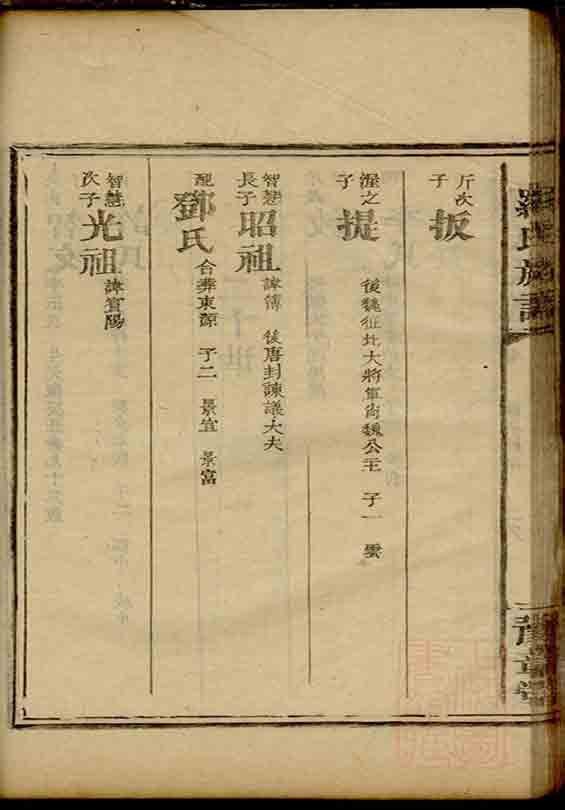 羅氏族譜
豫章堂
斤次子 扳
渥之子 提 後魏征北大將軍尚魏公主 子一 雲
智慧長子 昭祖 諱傅 後唐封諫議大夫
配 鄧氏 合葬東源 子二 景宜 景富
智慧次子 光祖 諱宣陽